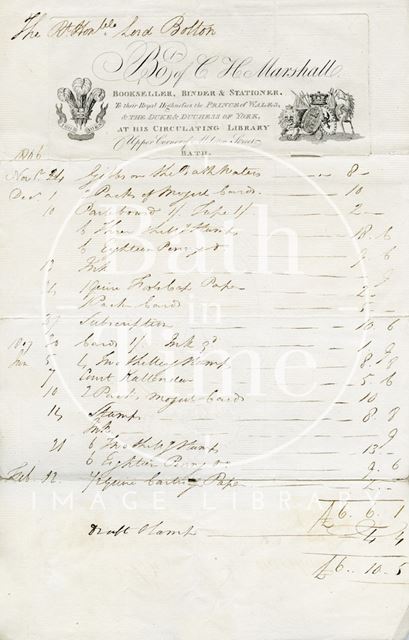 The Rt Honble Lord Bolton
Bot of C H Marshall
BOOKSELLER, BINDER & STATIONER,
To their Royal Highnesses the PRINCE of WALES,
& THE DUKE & DUCHESS OF YORK,
AT HIS CIRCULATING LIBRARY
Upper Corner of Milsom Street
BATH.
1806
Novr 24 Gibbs on the Bath Waters 8 -
Decr 1 2 Packs of Mogul Cards 10
10 Pasteboard 1/ Tape 1/ 2 -
6 Three Shillg Stamps 18 . 6
6 Eighteen Penny do 9 . 6
Ink
1 Quire Foolscap Paper
1 Pack Cards
Subscription 10 . 6
1807 Cards 1/ Ink 9d 1 . 9
Jan 5 4 Two Shilling Stamps 8 . 8
7 Court Kallender 5 . 6
10 2 Packs Mogul Cards 10
14 Stamps 8 . 8
Ink
21 6 Two Shillg Stamps 13 -
6 Eighteen Penny do 9 . 6
Feb. 12 Quire Cartridge Paper
£6 . 6 . 1
Draft Stamps 4 . 4
£6 . 10 . 5
Bath
in
Time
IMAGE LIBRARY